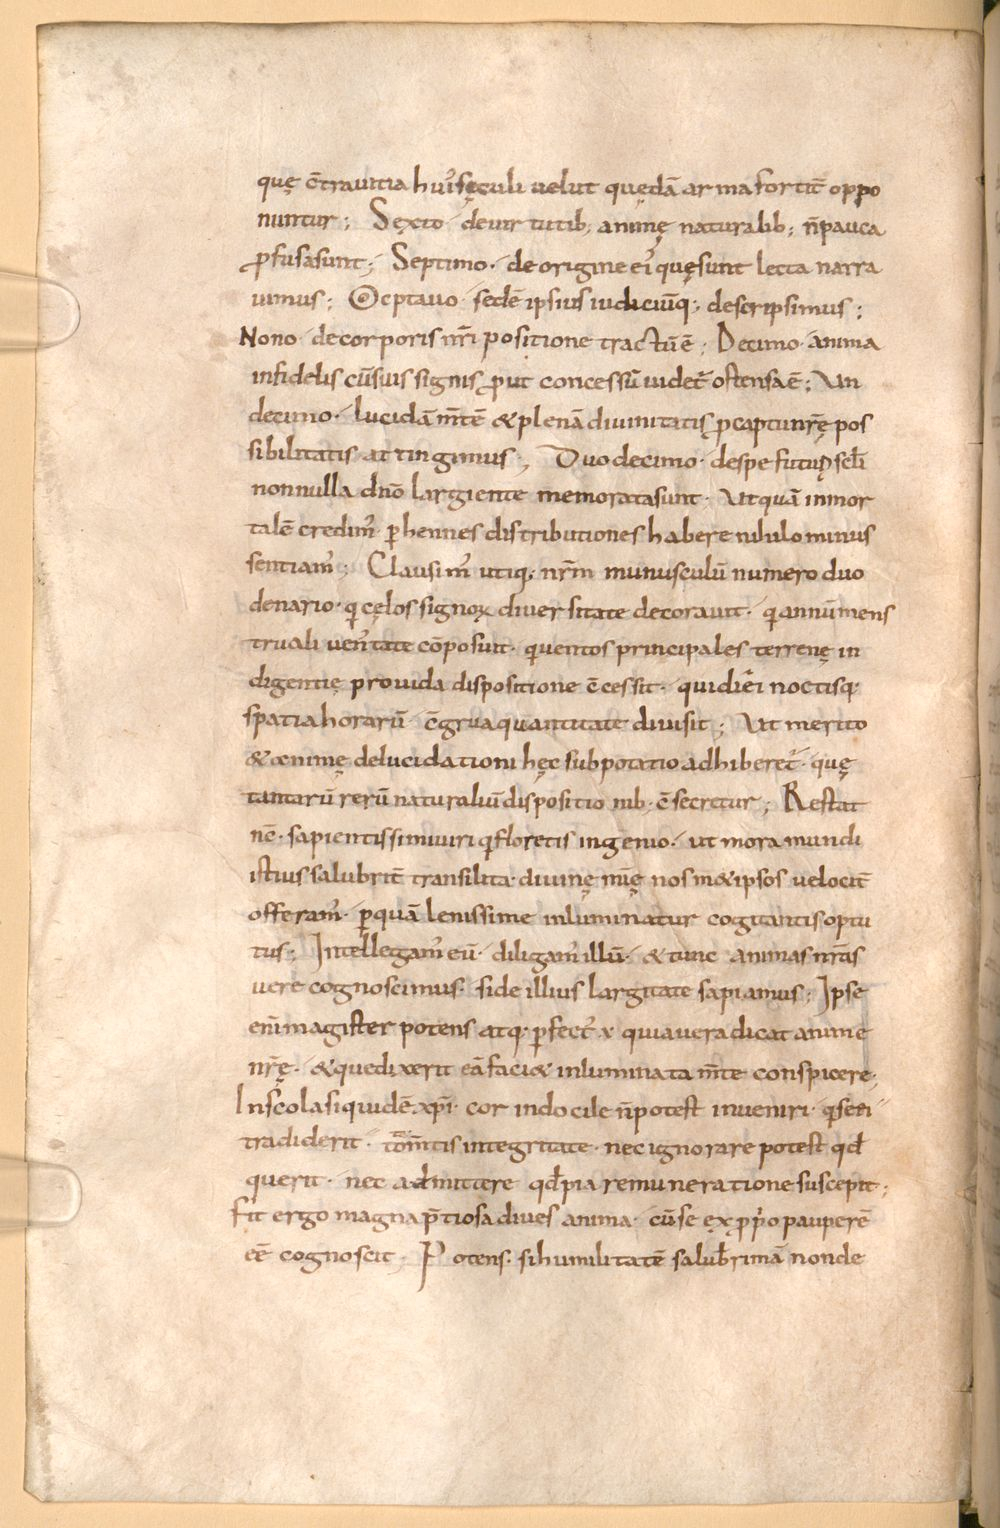 quę c̄tra uitia hui᾽ sęculi uelut quędā arma fortit̄ oppo
nuntur; Sexto· de uirtutib; animę naturalib; n̄ pauca
ꝓfusa sunt; Septimo· de origine ei᾽ quę sunt lecta narra
uimus; Octauo· sedē ipsius iudiciūq; descripsimus;
Nono· de corporis nr̄i positione tractū ē; Decimo· anima
infidelis cū suis signis ꝓut concessū uidet᾽ ostensa ē; Un
decimo· lucidā m̄tē & plenā diuinitatis ꝓ captu nr̄ę pos
sibilitatis attingimus; Duodecimo· de spe futuri sc̄li
nonnulla dn̄o largiente memorata sunt· Ut quā inmor
talē credim᾽ ꝑhennes distributiones habere nihilominus
sentiam᾽; Clausim᾽ utiq; nr̄m munusculū numero duo
denario· qi cęlos signoꝝ diuersitate decorauit· qi annū mens
truali uenustate cōposuit· qi uentos principales terrenę in
digentię prouida dispositione c̄cessit· qui diei noctisq·
spatia horarū c̄grua quantitate diuisit; Ut merito
& animę delucidationi hęc subpotatio adhiberet᾽· quę
tantarū rerū naturaliū dispositionib· c̄secretur; Restat
nc̄· sapientissimi uiri qi floretis ingenio· ut mora mundi
istius salubrit̄ transilita· diuinę mīę nosm&ipsos uelocit̄
offeram᾽· ꝑ quā lenissime inluminatur cogitantis optu
tus; Intellegam᾽ eū· diligam᾽ illū· & tunc animas nr̄as
uere cognoscimus· si de illius largitate sapiamus; Ipse
enī magister potens atq· ꝑfect᾽ ÷ qui a uera dicat anime
nr̄ę· & que dixerit eā faci& inluminata m̄te conspicere;
In scola siquidē xp̄i· cor indocile n̄ potest inueniri· qi se ei
tradiderit· tota m̄tis integritate· nec ignorare potest qd̄
querit· nec admittere qd̄ pia remuneratione suscepit;
Fit ergo magna p̄tiosa diues anima· cū se ęx ꝓprio pauperē
eē cognoscit; Potens· si humilitatē saluberrimā non de